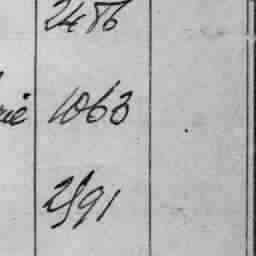 2486
rie 1063
2591